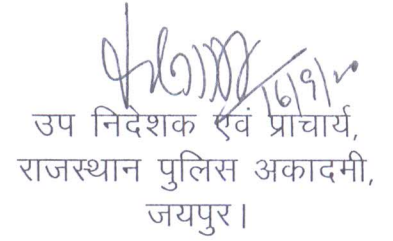 16/9/20
उप निदेशक एवं प्राचार्य,
राजस्थान पुलिस अकादमी,
जयपुर।